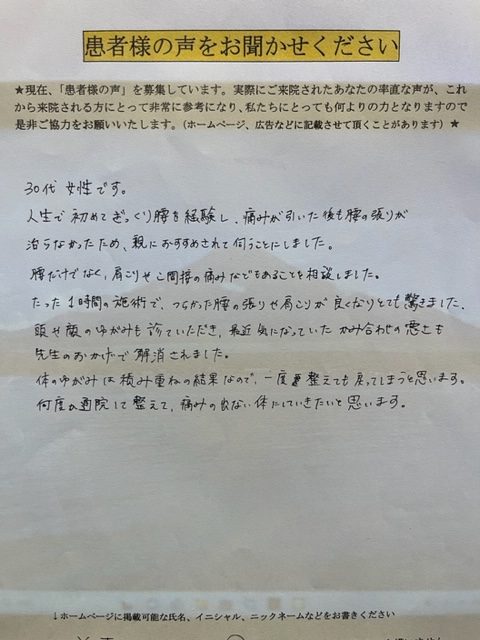 患者様の声をお聞かせください
★現在、「患者様の声」を募集しています。実際にご来院されたあなたの率直な声が、これ
から来院される方にとって非常に参考になり、私たちにとっても何よりの力となりますので
是非ご協力をお願いいたします。（ホームページ、広告などに記載させて頂くことがあります）★
30代 女性です。
人生で初めてぎっくり腰を経験し、痛みが引いた後も腰の張りが
治らなかったため、親におすすめされて伺うことにしました。
腰だけでなく、肩こりや股関節の痛みなどもあることを相談しました。
たった1時間の施術で、つらかった腰の張りや肩こりが良くなりとても驚きました。
頭や顔のゆがみも診ていただき、最近気になっていたかみ合わせの悪さも
先生のおかげで解消されました。
体のゆがみは積み重ねの結果なので、一度整えても戻ってしまうと思います。
何度か通院して整えて、痛みの出ない体にしていきたいと思います。
↓ホームページに掲載可能な氏名、イニシャル、ニックネームなどをお書きください